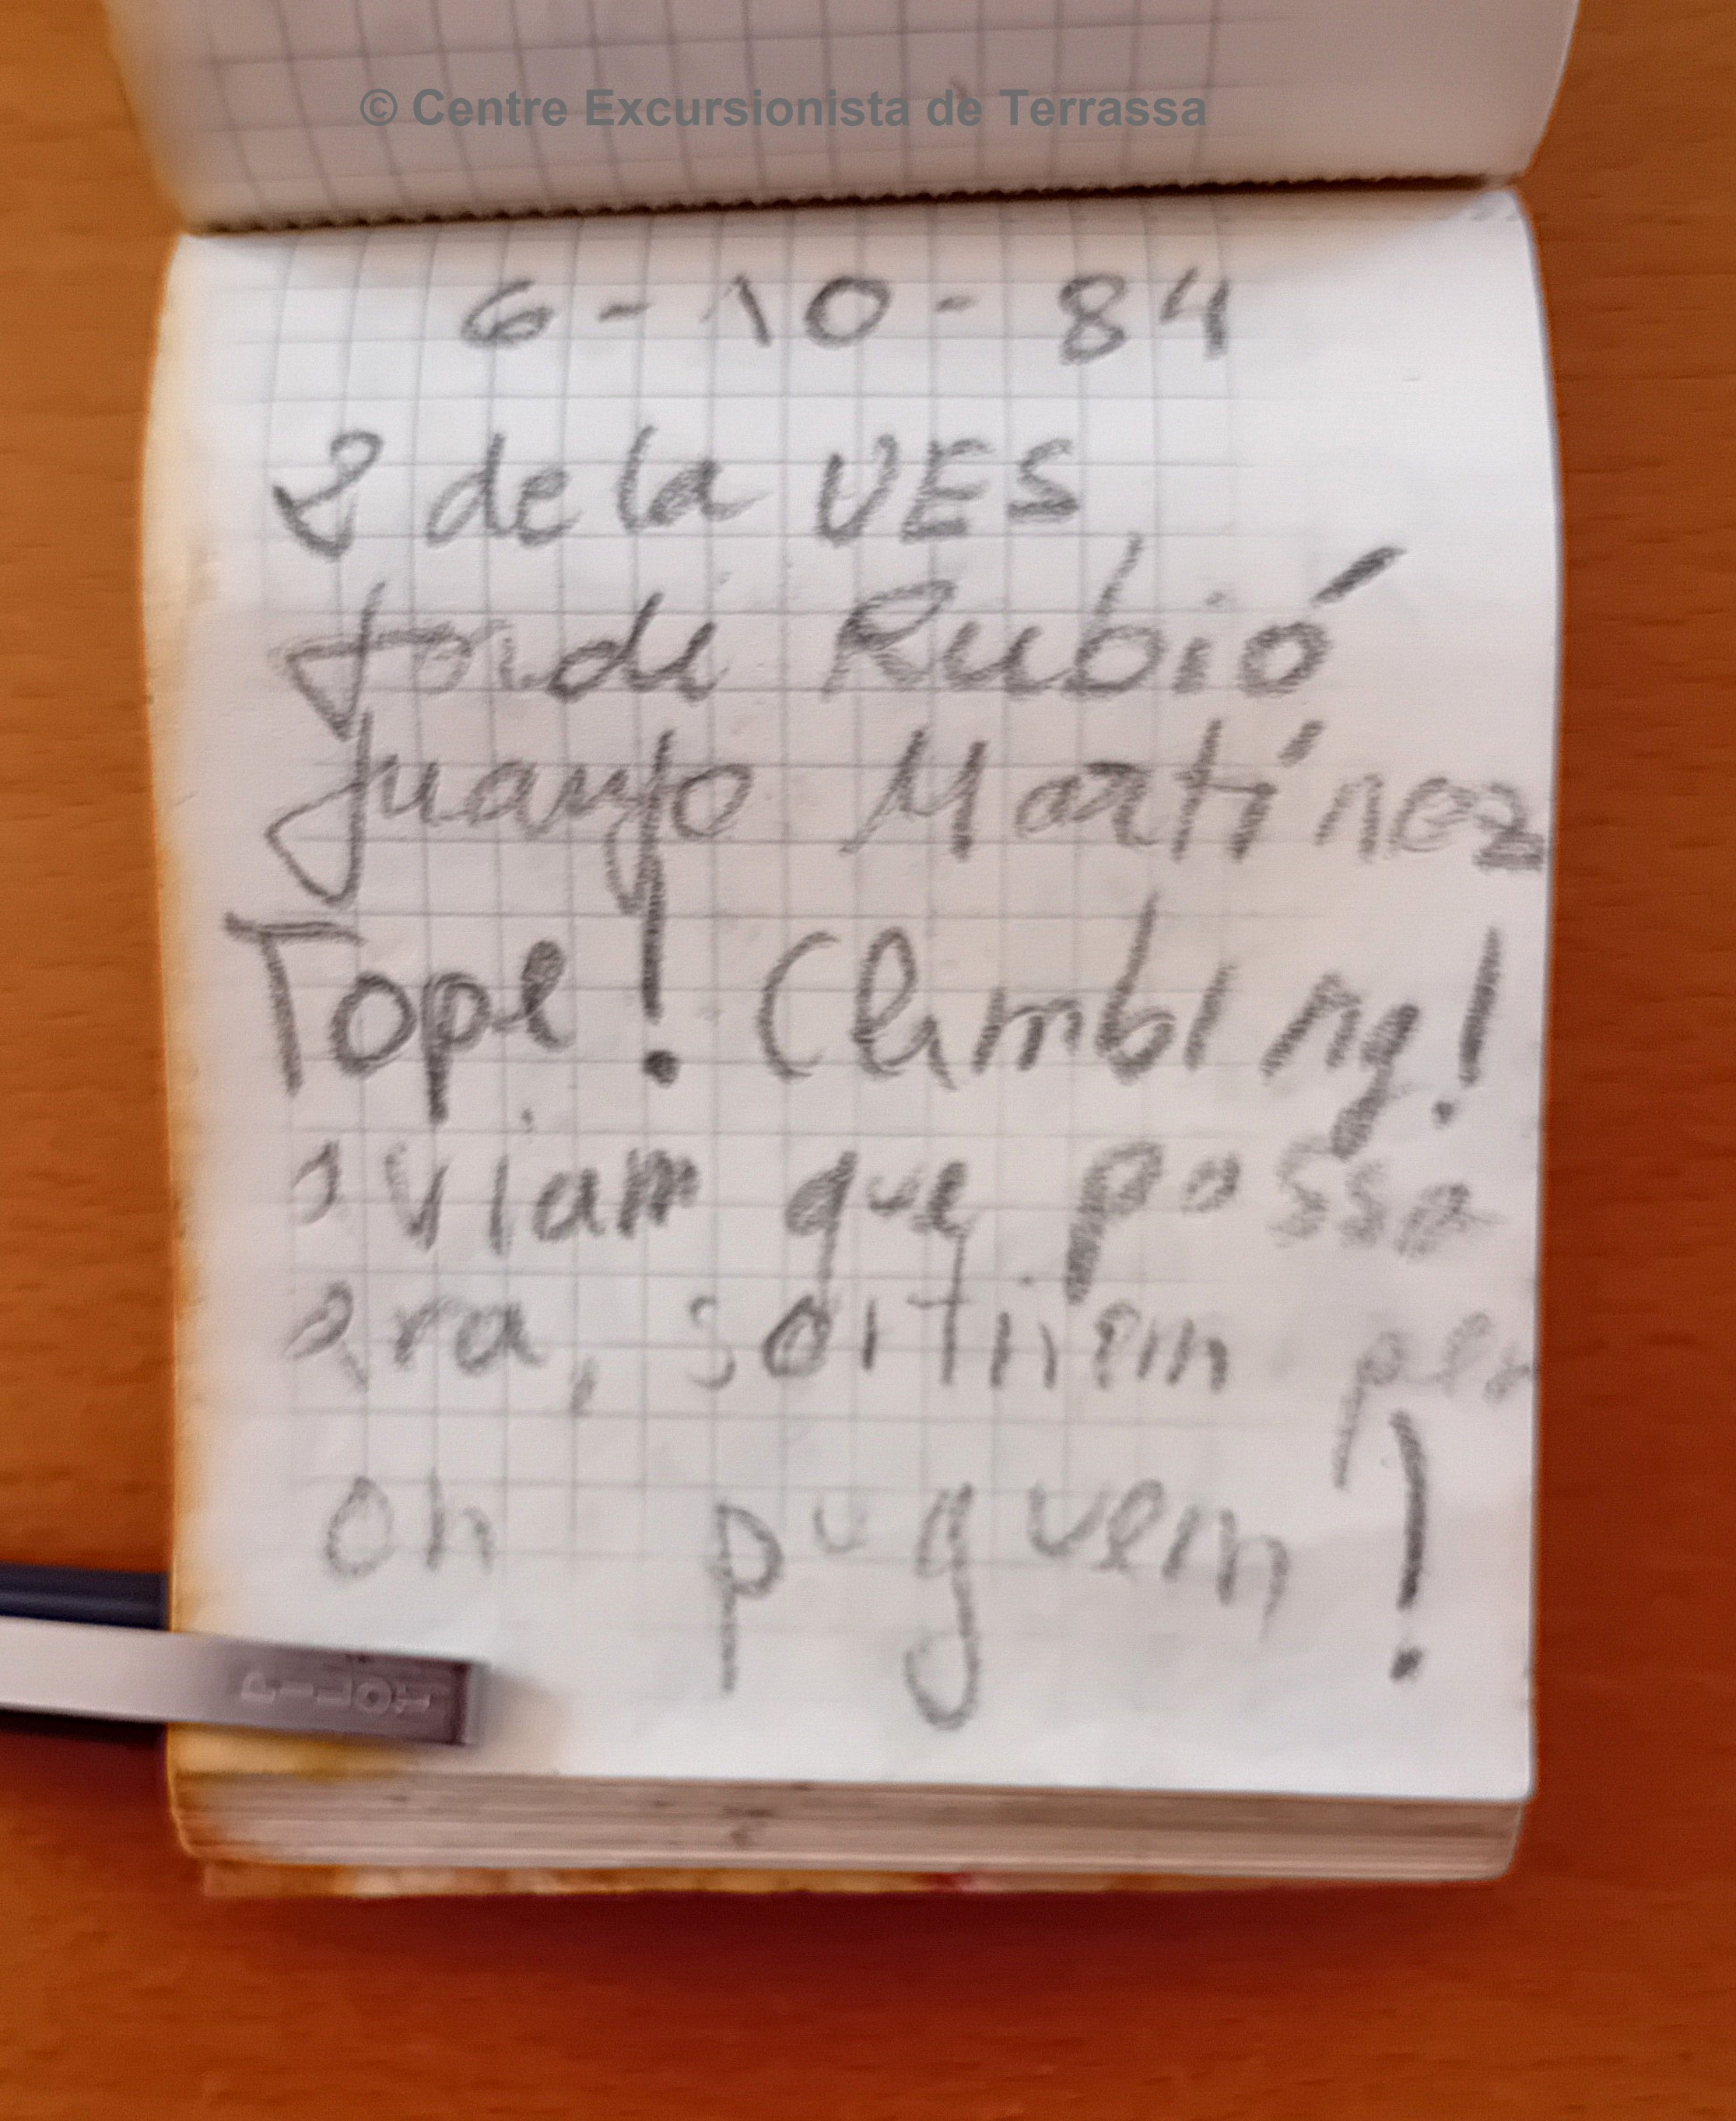 © Centre Excursionista de Terrassa
6-10-84
2 de la UES
Jordi Rubió
Juanjo Martínez
Tope! Climbing!
aviam que passa
ara, sortirem per
on puguem!
PILOT